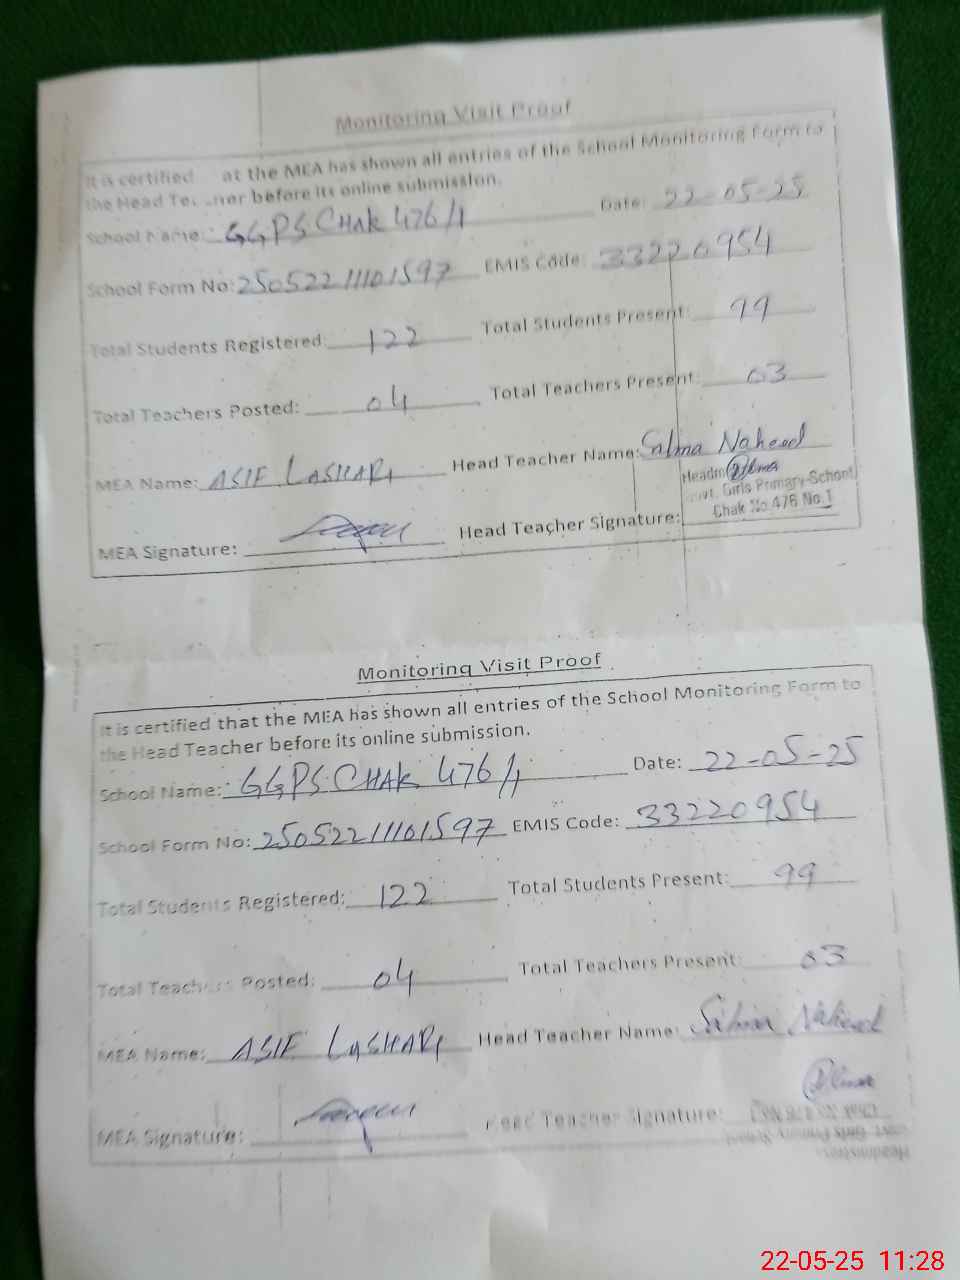 Monitoring Visit Proof
It is certified at the MEA has shown all entries of the School Monitoring Form to
the Head Teacher before its online submission.
School Name: GGPS CHAK 476/1 Date: 22-05-25
School Form No: 25052211101597 EMIS Code: 33220954
Total Students Registered: 122 Total Students Present: 99
Total Teachers Posted: 04 Total Teachers Present: 03
MEA Name: ASIF LASHARI Head Teacher Name: Salma Naheed
MEA Signature: Head Teacher Signature:
Govt. Girls Primary School
Chak No.476 No.1
Monitoring Visit Proof
It is certified that the MEA has shown all entries of the School Monitoring Form to
the Head Teacher before its online submission.
School Name: GGPS CHAK 476/1 Date: 22-05-25
School Form No: 25052211101597 EMIS Code: 33220954
Total Students Registered: 122 Total Students Present: 99
Total Teachers Posted: 04 Total Teachers Present: 03
MEA Name: ASIF LASHARI Head Teacher Name: Salma Naheed
MEA Signature: Head Teacher Signature:
Govt. Girls Primary School
Headmistress
22-05-25 11:28